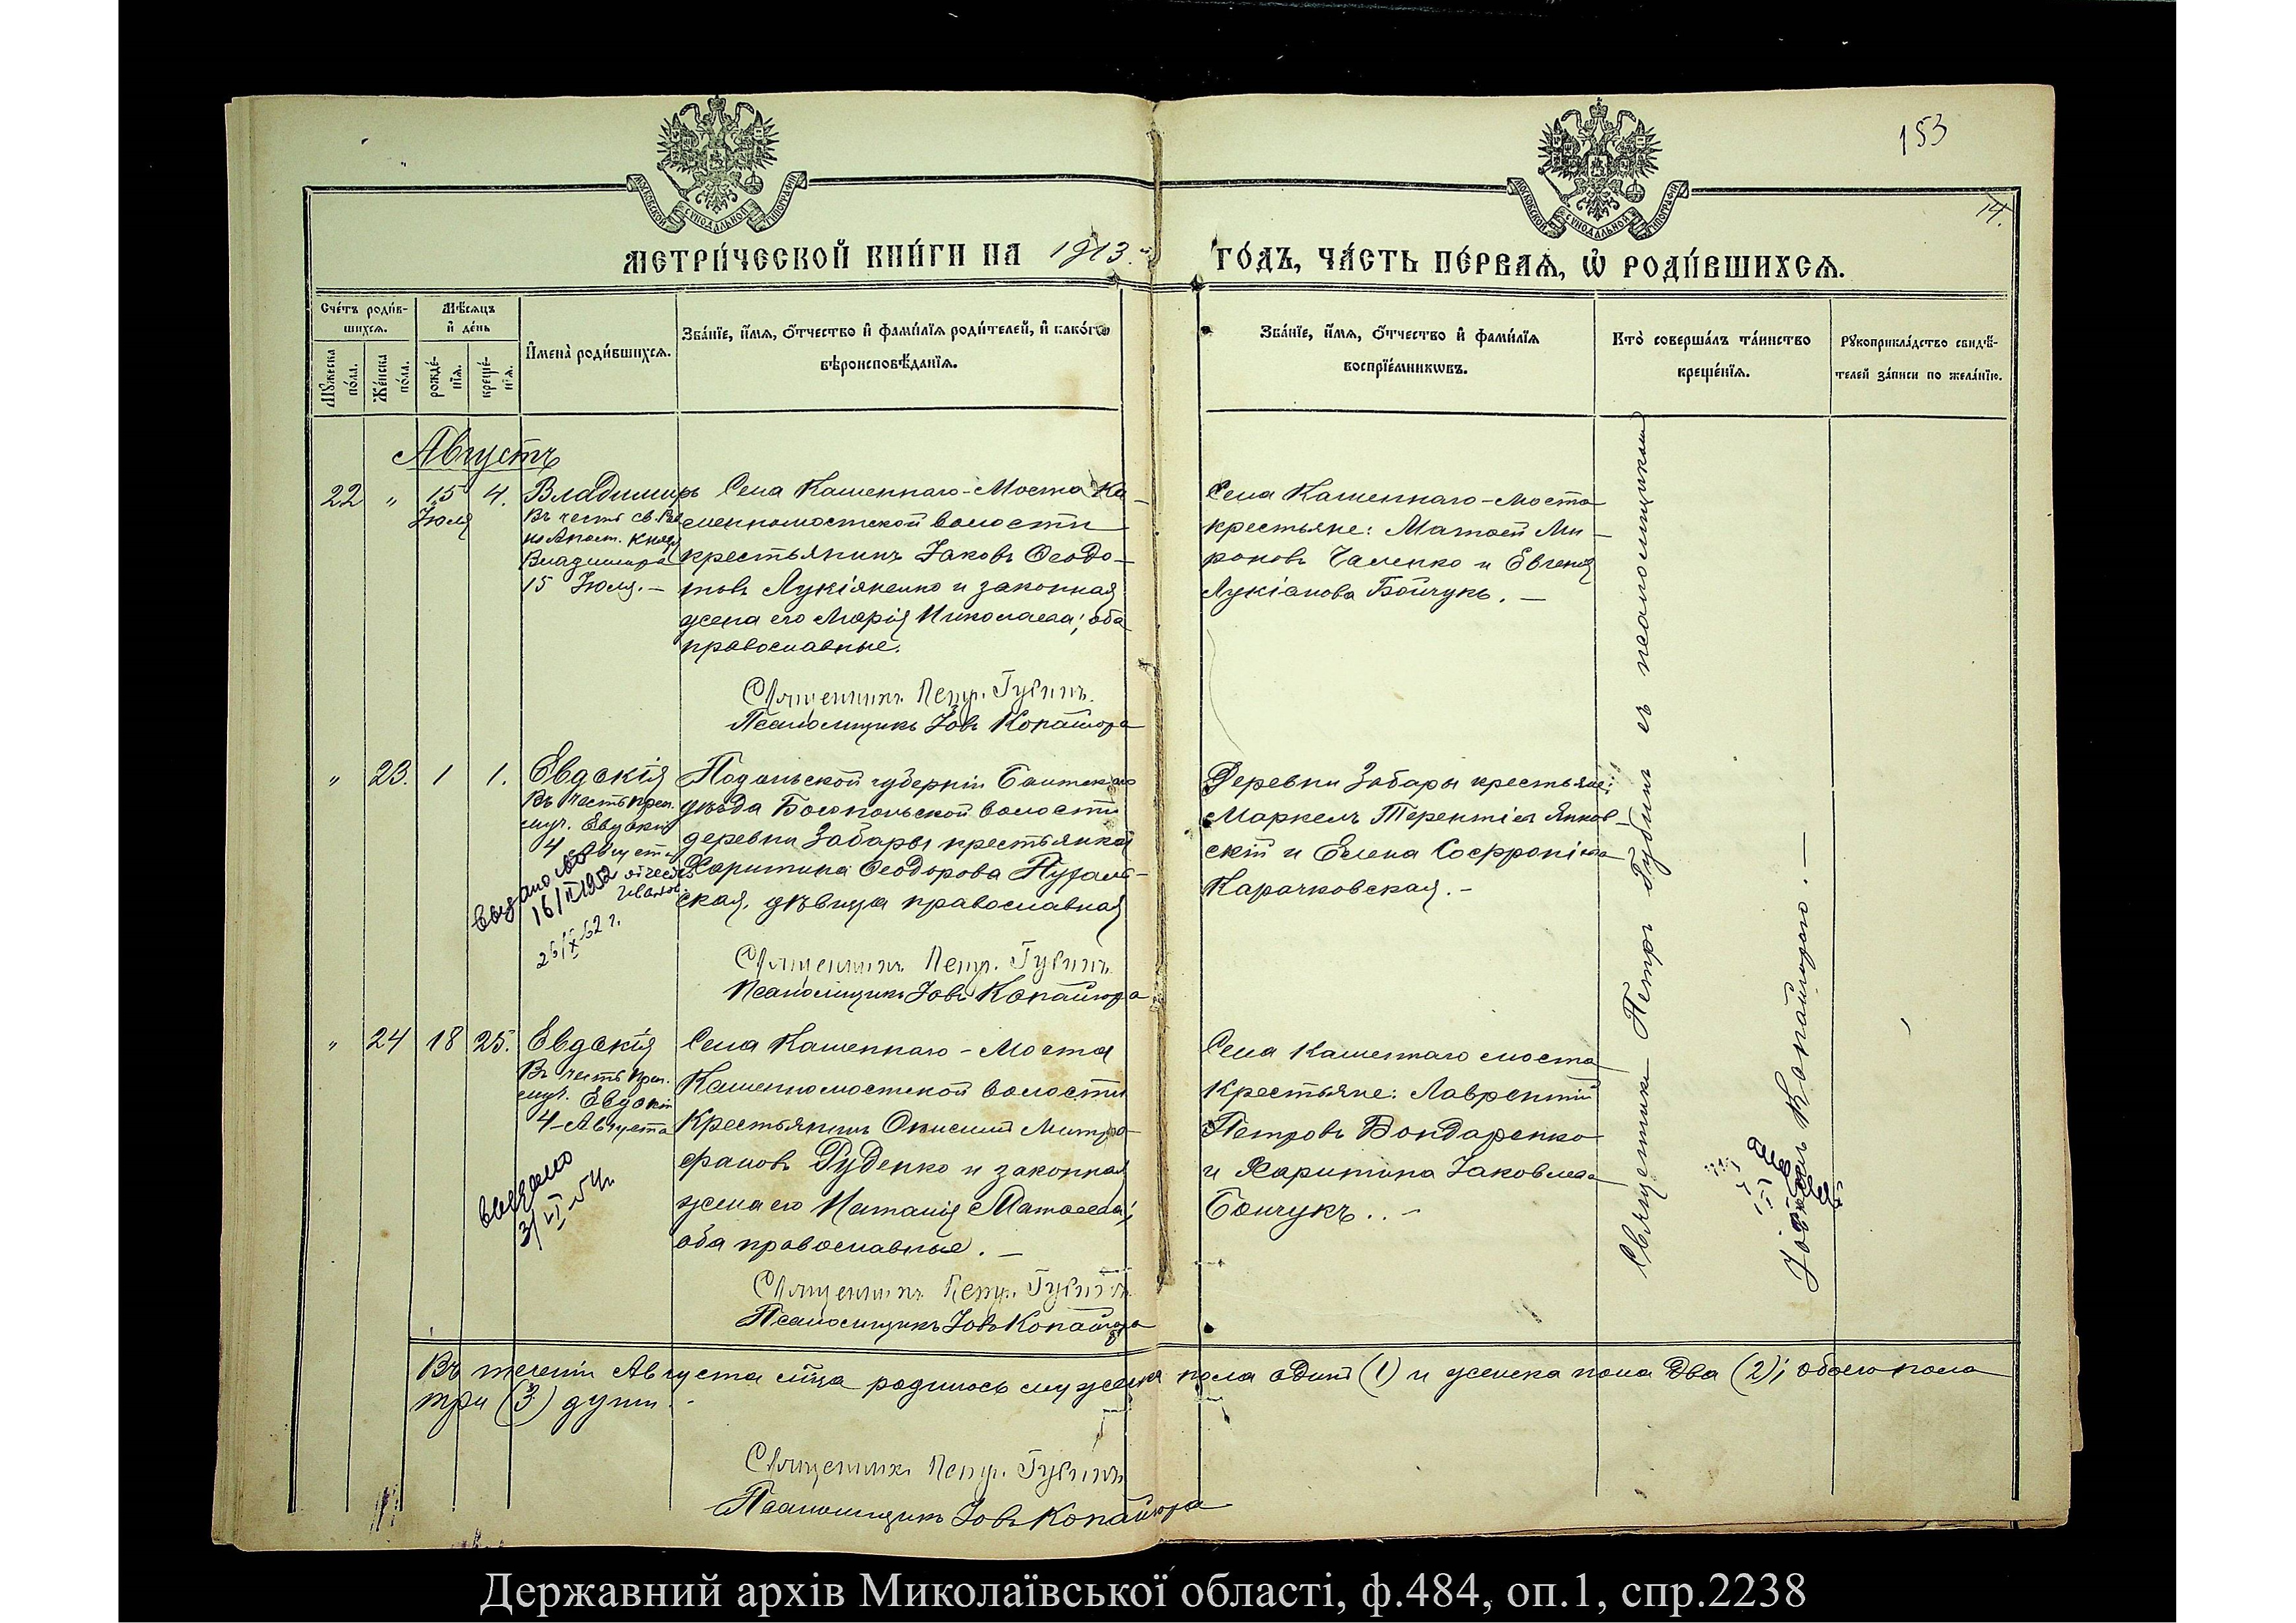 153
14.
МОСКОВСКОЙ СУНОДАЛЬНОЙ ТИПОГРАФІИ
МОСКОВСКОЙ СУНОДАЛЬНОЙ ТИПОГРАФІИ
МЕТРИ́ЧЕСКОЙ КНИ́ГИ НА 1913.
ГО́ДЪ, ЧА́СТЬ ПЕ́РВАѦ, Ѡ РОДИ́ВШИХСѦ.
Сче́тъ роди́в-
шихсѧ.
Мѣ́сѧцъ
и҆ де́нь
Мꙋ́жеска
по́ла.
Же́нска
по́ла.
рожде́-
нїѧ.
креще́-
нїѧ.
И҆мена̀ роди́вшихсѧ.
Зва́нїе, и҆́мѧ, ѻ҆́тчество и҆ фами́лїѧ роди́телей, и҆ како́гѡ
вѣроисповѣ́данїѧ.
Зва́нїе, и҆́мѧ, ѻ҆́тчество и҆ фами́лїѧ
воспрїе́мникѡвъ.
Кто̀ соверша́лъ та́инство
креще́нїѧ.
Рꙋкоприкла́дство свидѣ́-
телей за́писи по жела́нїю.
Августъ
22 " 15 Іюля 4.
Владимиръ
Въ честь св. Рав
но Апост. Князя
Владимира
15 Іюля. –
Села Каменнаго-Моста Ка-
менномостской волости
крестьянинъ Іаковъ Ѳеодо-
товъ Лукіяненко и законная
жена его Марія Николаева; оба
православные.
Священникъ Петръ Губинъ
Псаломщикъ Іовъ Копайгора
Села Каменнаго-Моста
крестьяне: Матѳей Ми-
роновъ Чаленко и Евгенія
Лукіанова Бойчукъ. –
" 23. 1 1.
Евдокія
Въ честь преп.
муч. Евдокіи
4 Августа
выдано св.
16/II 1952
26/IX 62 г.
Подольской губерніи Балтскаго
уѣзда Богопольской волости
деревни Забары крестьянка
Харитина Ѳеодорова
дѣвица православная
Священникъ Петръ Губинъ
Псаломщикъ Іовъ Копайгора
Деревни Забары крестьяне:
Маркелъ Терентіевъ Янков-
скій и Елена Софроніева
Карачковская. –
" 24 18 25.
Евдокія
Въ честь преп.
муч. Евдокіи
4 Августа
выдано
3/VI 54 г.
Села Каменнаго-Моста
Каменномостской волости
Крестьянинъ Онисимъ Митро-
фановъ Руденко и законная
жена его Наталія Матѳеева;
оба православные. –
Священникъ Петръ Губинъ
Псаломщикъ Іовъ Копайгора
Села Каменнаго моста
Крестьяне: Лаврентій
Петровъ Бондаренко
и Харитина Іаковлева
Бойчукъ. . –
Священникъ Петръ Губинъ съ псаломщикомъ
Іовомъ Копайгорою. –
Въ теченіи Августа м-ца родилось мужеска пола одинъ (1) и женска пола два (2); обоего пола
три (3) души. –
Священникъ Петръ Губинъ
Псаломщикъ Іовъ Копайгора
Державний архів Миколаївської області, ф.484, оп.1, спр.2238